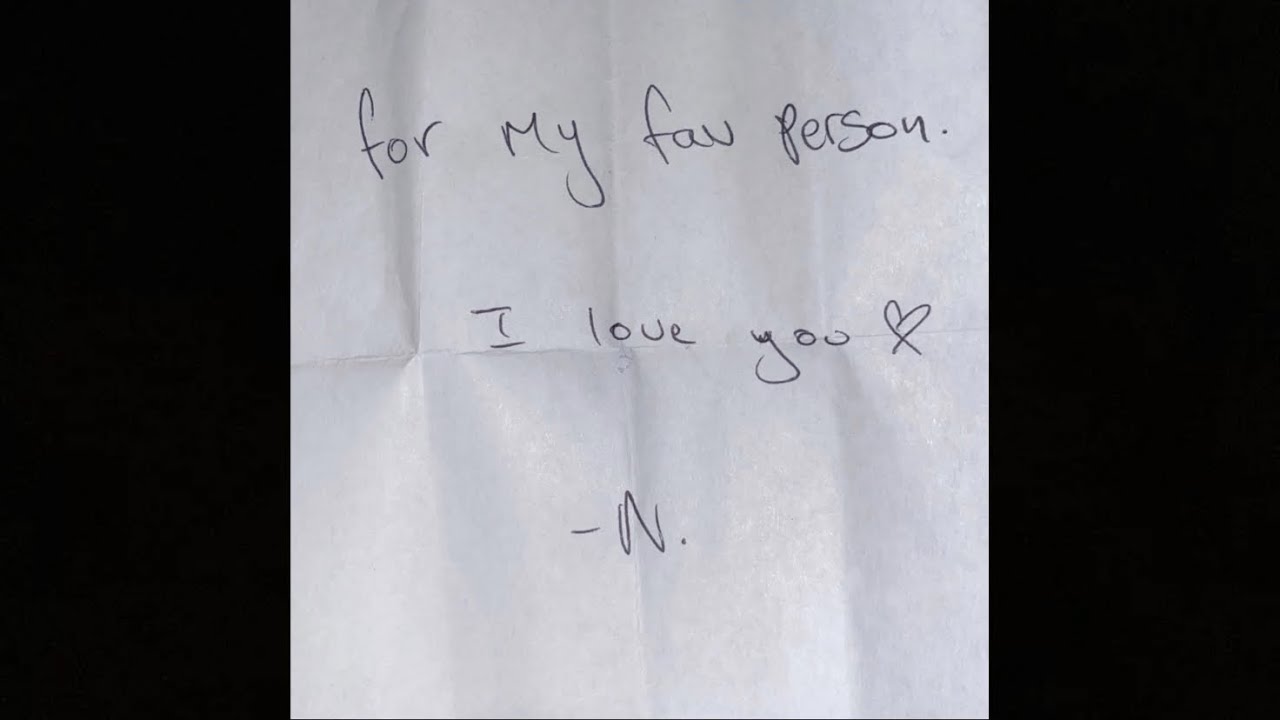 for My fav person.
I love you ♡
-N.